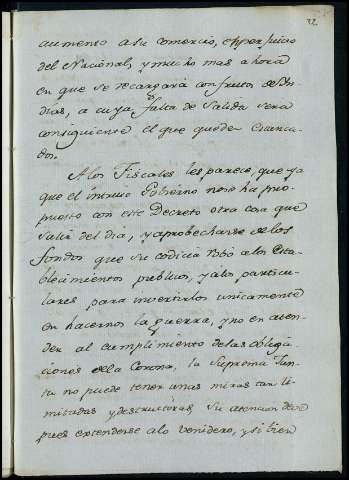 22
aumento a su comercio, en perjuicio
del Nacional, y mucho mas ahora
en que se recargará con frutos de Yn-
dias, a cuya falta de salida será
consiguiente el que queden estanca-
dos.
A los Fiscales les parece, que ya
que el intruso Gobierno no se ha pro-
puesto con este Decreto otra cosa que
salir del dia, y aprobecharse de los
fondos que su codicia robó a los esta-
blecimientos publicos, y a los particu-
lares para invertirlos unicamente
en hacernos la guerra, y no en aten-
der al cumplimiento de las obliga-
ciones de la Corona, la Suprema Jun-
ta no puede tener unas miras tan li-
mitadas y destructoras. Su atencion debe
pues extenderse a lo venidero, y si bien